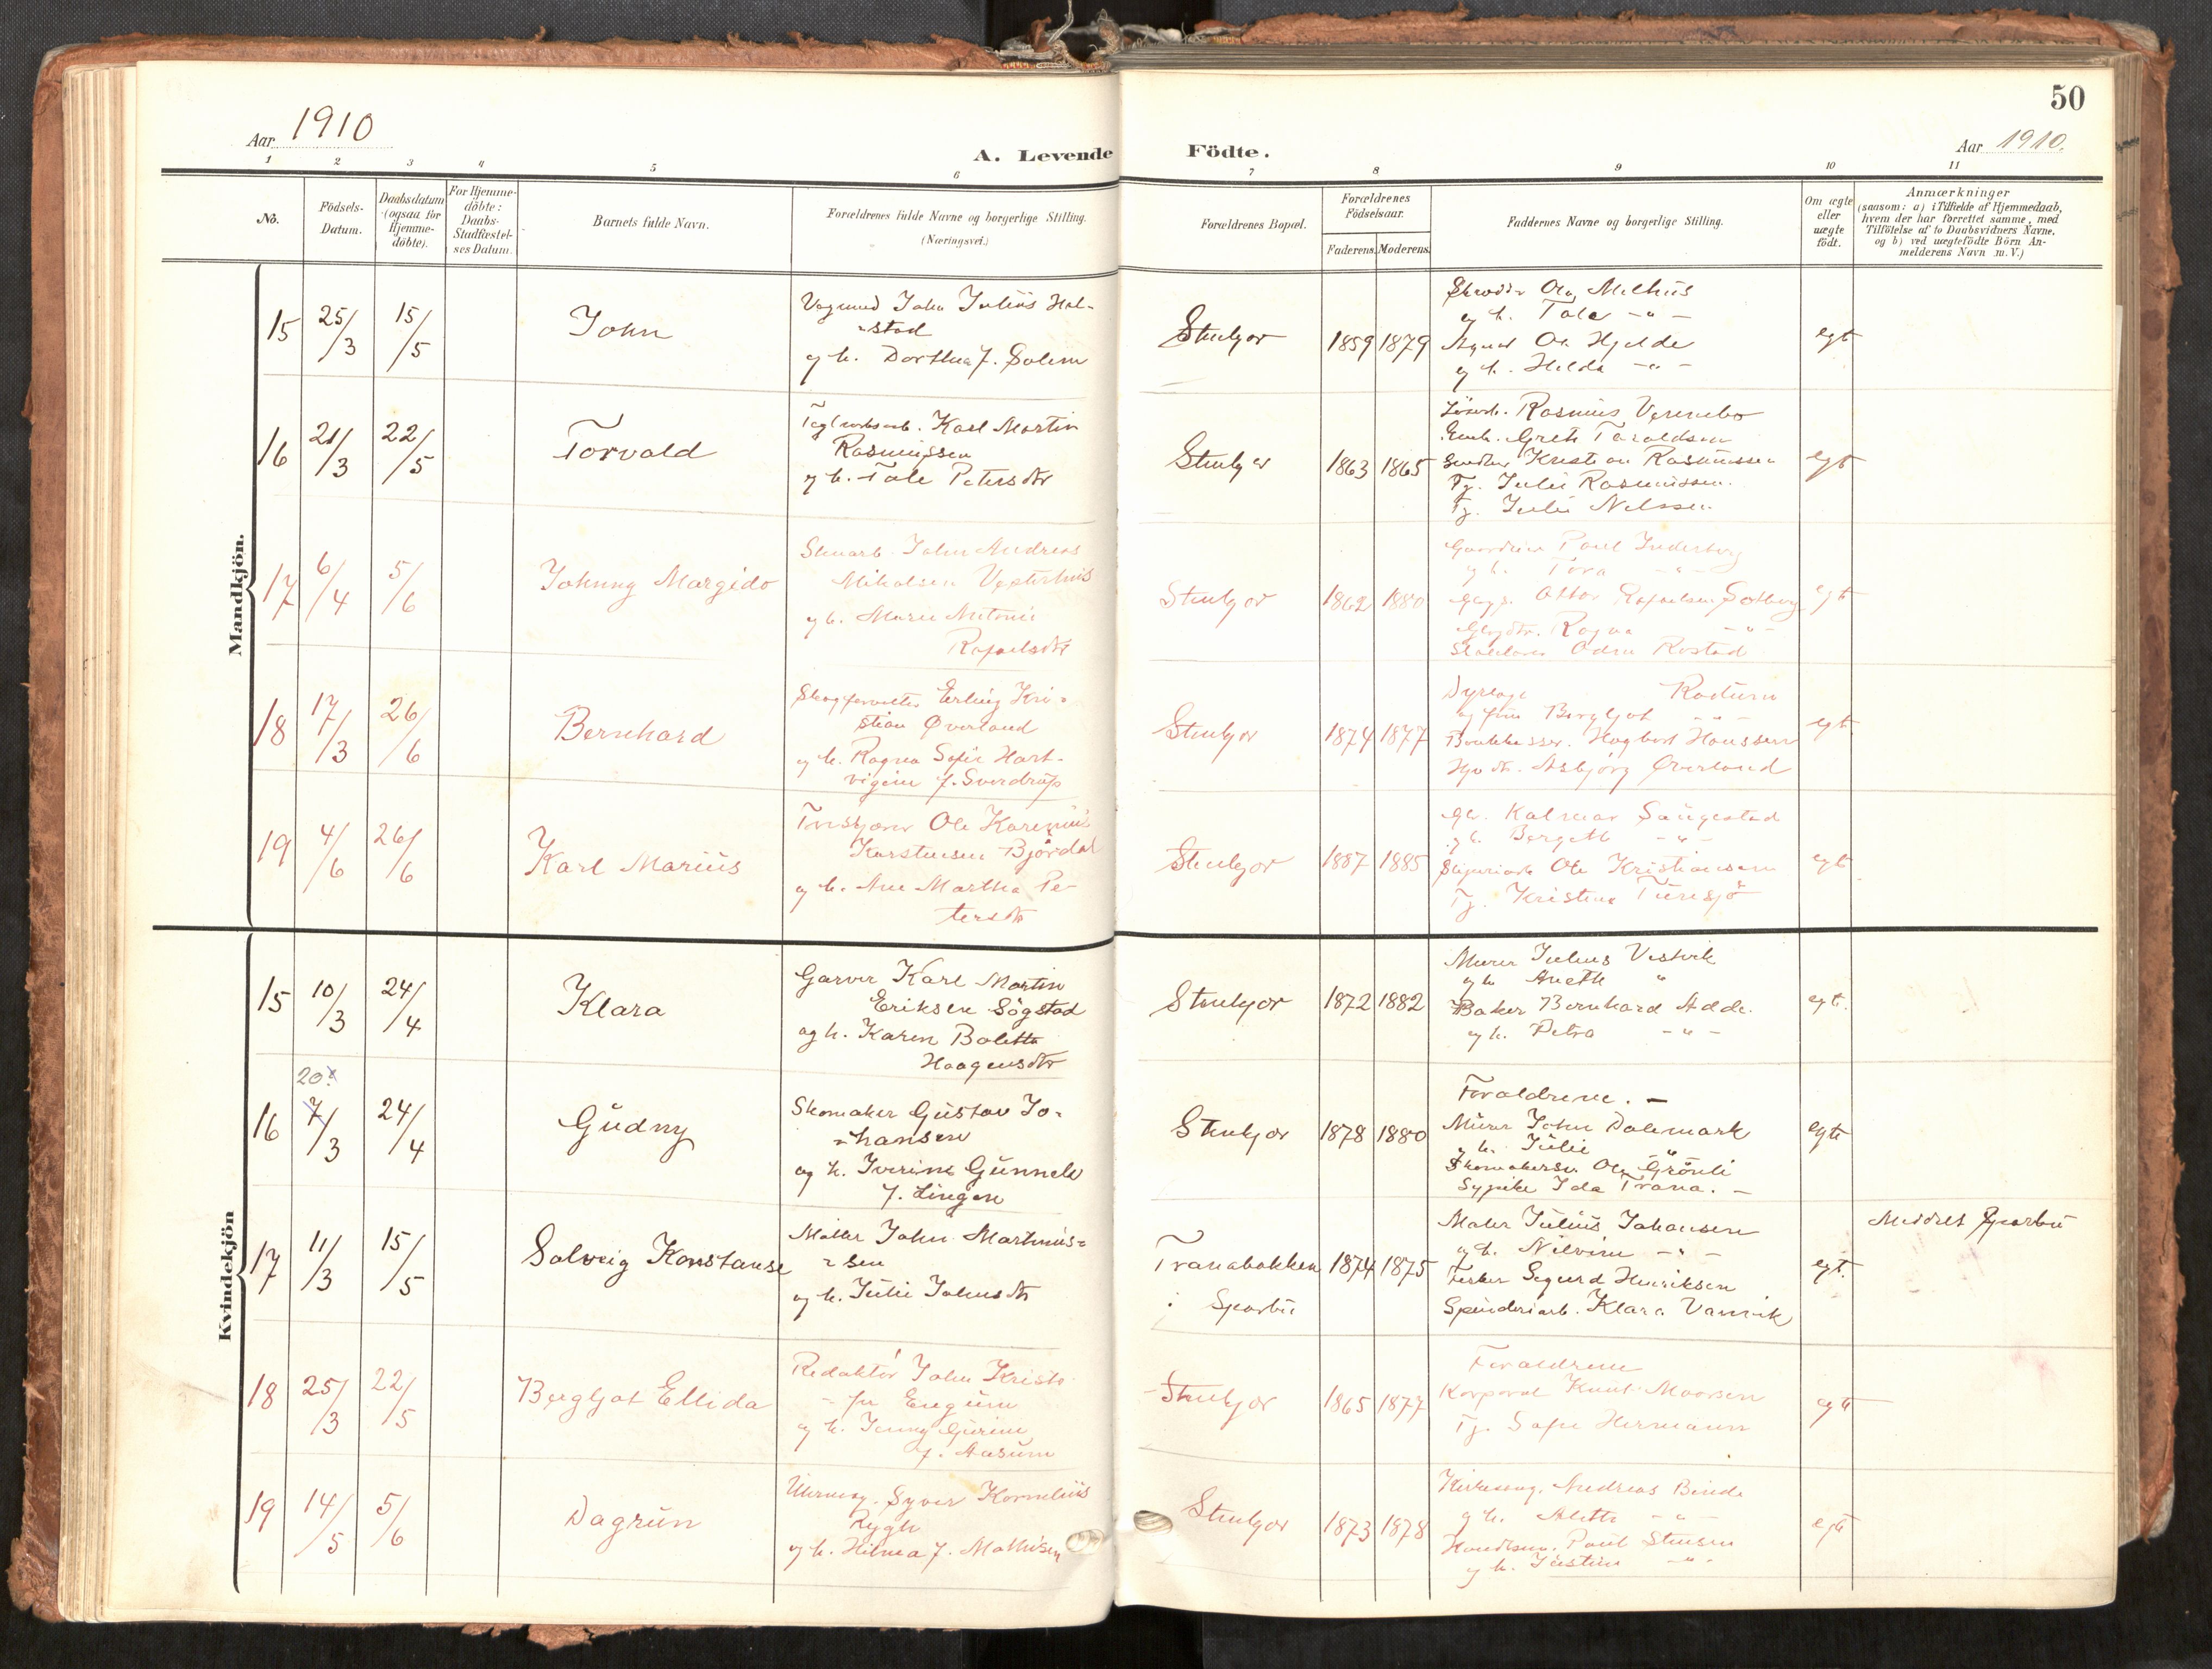 50
Aar 1910
A. Levende Födte.
Aar 1910.
1 2 3 4 5 6 7 8 9 10 11
No.
Födsels-Datum.
Daabsdatum (ogsaa for Hjemme-döbte).
For Hjemme-döbte: Daabs-Stadfæstel-ses Datum.
Barnets fulde Navn.
Forældrenes fulde Navne og borgerlige Stilling.
(Næringsvei.)
Forældrenes Bopæl.
Forældrenes Födselsaar.
Faderens. Moderens.
Faddernes Navne og borgerlige Stilling.
Om ægte eller uægte födt.
Anmærkninger
(saasom: a) i Tilfælde af Hjemmedaab,
hvem der har forrettet samme, med
Tilföielse af to Daabsvidners Navne,
og b) ved uægtefödte Börn An-
melderens Navn m. V.)
Mandkjön.
15 25/3 15/5 John
Vogmand John Julius Hal-
-stad
og h. Dorthea f. Solem
Stenkjær 1859 1879
Skrædder Ole Melhus
og h. Tale -"-
Agent Ole Hjelde
og h. Hilda -"-
egt
16 21/3 22/5 Torvald
Teglverksarb. Karl Martin
Rasmussen
og h. Tale Petersdtr
Stenkjær 1863 1865
Rasmus Vennebo
Grete Taraldsen
Kristian Rasmussen
Tj. Julie Rasmussen.
Tj. Julie Nelssen
egt
17 6/4 5/6 Johnny Margido
Stenarb. John Andreas
Mikalsen Vesterhus
og h. Marie Antonie
Rafaelsdtr
Stenkjær 1862 1880
Gaardeier Paul Inderberg
og h. Tora -"-
Ottar Rafaelsen Solberg
Ragna -"-
Odin Rostad
egt
18 17/3 26/6 Bernhard
Skogforvalter Erling Kri-
stian Øverland
og h. Ragna Sofie Hart-
vigine f. Sverdrup
Stenkjær 1874 1877
Dyrlæge Rostum
og fru Bergljot -"-
Bankkasser. Hagbart Hanssen
Asbjørg Øverland
egt.
19 4/6 26/6 Karl Marius
Træskjærer Ole Karenius
Karstensen Bjørdal
og h. Ane Martha Pe-
tersdtr
Stenkjær 1887 1885
Kalmar Saugestad
og h. Bergitte -"-
Ole Kristiansen
Tj. Kristine Turesjø
egt
Kvindekjön
15 10/3 24/4 Klara
Garver Karl Martin
Eriksen Sögstad
og h. Karen Bolette
Haagensdtr
Stenkjær 1872 1882
Murer Julius Vestvik
og h. Anette "
Baker Bernhard Adde.
og h. Petra -"-
egt.
20.
16 7/3 24/4 Gudny
Skomaker Gustav Jo-
-hansen
og h. Iverine Gunnele
f. Lingen
Stenkjær 1878 1880
Forældrene. -
Murer John Dalemark
og h. Julie "
Skomakersv. Ole Grönli
Sypike Ida Trana. -
egte
17 11/3 15/5 Solveig Konstanse
Møller John Martinus-
-sen
og h. Julie Johnsdtr
Tranabakken
i Sparbu
1874 1875
Maler Julius Johansen
og h. Nilvine -"-
Fesker Sigurd Henriksen
Spinderiarb. Klara Vannvik
egt.
Meddelt Sparbu
18 25/3 22/5 Bergljot Ellida
Redaktör John Kristo-
-fer Engum
og h. Jenny Gurine
f. Aasum
Stenkjær 1865 1877
Forældrene
Korporal Knut Moorsen
Tj. Sofie Hermann
egt
19 14/5 5/6 Dagrun
Urmag. Syver Kornelius
Rygh
og h. Hilma f. Mathisen
Stenkjær 1873 1878
Kirkesang. Andreas Binde
og h. Alette -"-
Handlsm. Paul Stensen
og h. Justine -"-
egt